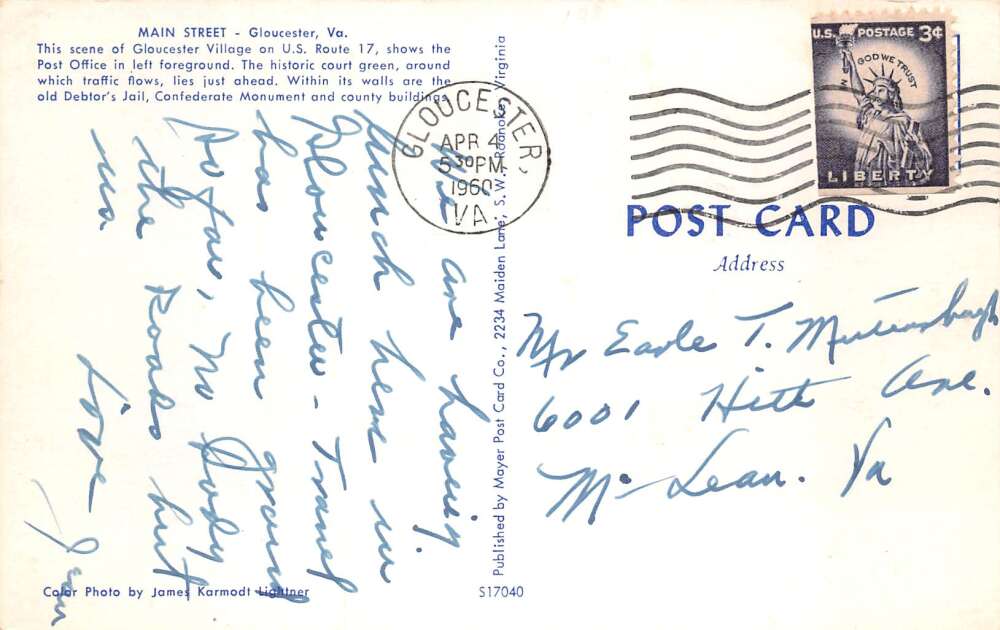 MAIN STREET - Gloucester, Va.
This scene of Gloucester Village on U.S. Route 17, shows the
Post Office in left foreground. The historic court green, around
which traffic flows, lies just ahead. Within its walls are the
old Debtor's Jail, Confederate Monument and county buildings.
We are having
lunch here in
Gloucester - Travel
has been grand
so far, no body
the Roads but
us
Love
Jean
Color Photo by James Karmodt Lightner
S17040
Published by Mayer Post Card Co., 2234 Maiden Lane, S.W., Roanoke, Virginia
GLOUCESTER,
APR 4
5 30 PM
1960
VA.
U.S. POSTAGE 3¢
IN GOD WE TRUST
LIBERTY
POST CARD
Address
Earle T.
6001 Ave.
Mc Lean. Va